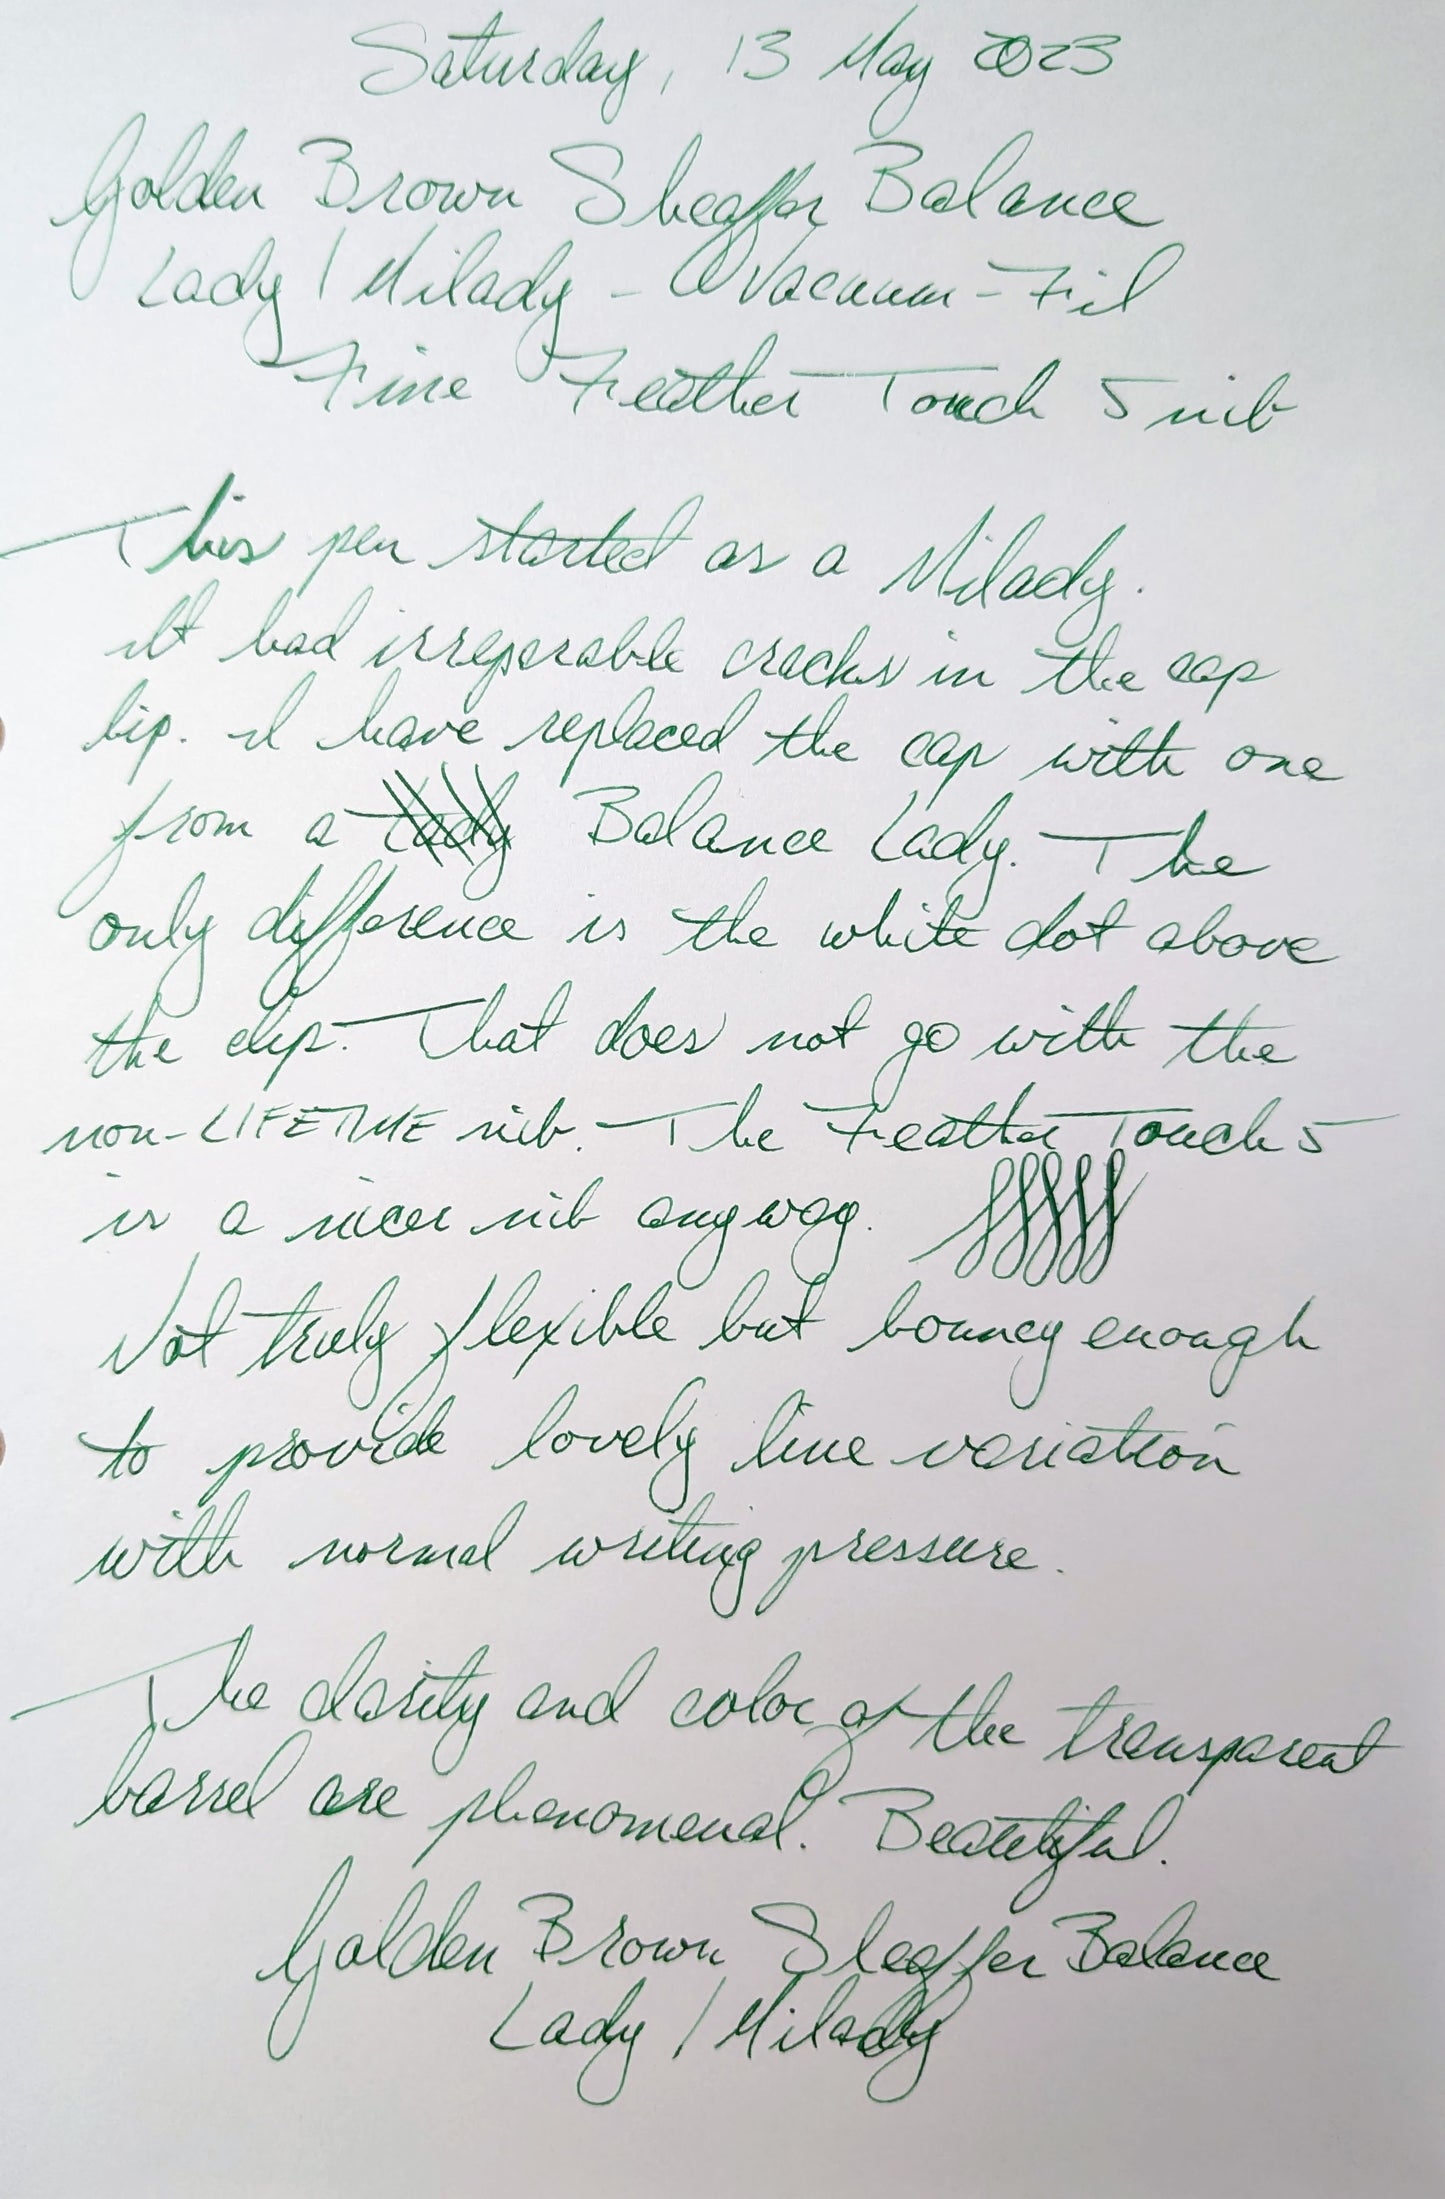 Saturday, 13 May 2023
Golden Brown Sheaffer Balance
Lady / Milady - Vacuum-Fil
Fine Feather Touch 5 nib
This pen started as a Milady.
It had irreparable cracks in the cap
lip. I have replaced the cap with one
from a Lady Balance Lady. The
only difference is the white dot above
the clip. That does not go with the
non-LIFETIME nib. The Feather Touch 5
is a nicer nib anyway.
Not truly flexible but bouncy enough
to provide lovely line variation
with normal writing pressure.
The clarity and color of the transparent
barrel are phenomenal. Beautiful.
Golden Brown Sheaffer Balance
Lady / Milady